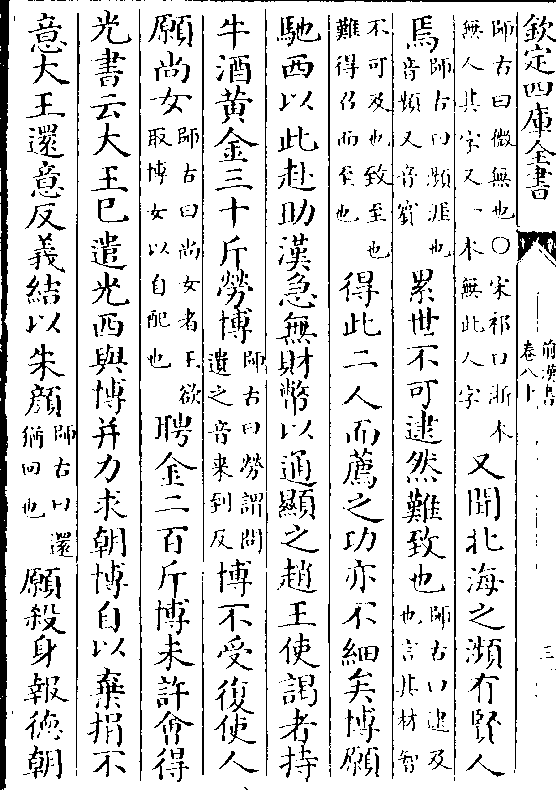 欽定四庫全書
前漢書
卷八上
三
師古曰微無也○宋祁曰浙本
無人其字又一本無此人字
又聞北海之瀕有賢人
焉
師古曰瀕涯也
音頻又音賓
累世不可逮然難致也
師古曰逮及
也言其材智
不可及也致至也
難得召而至也
得此二人而薦之功亦不細矣博願
馳西以此赴助漢急無財幣以通顯之趙王使謁者持
牛酒黃金三十斤勞博
師古曰勞謂問
遺之音来到反
博不受復使人
願尚女
師古曰尚女者王欲
取博女以自配也
聘金二百斤博未許會得
光書云大王已遣光西與博并力求朝博自以棄捐不
意大王還意反義結以朱顏
師古曰還
猶回也
願殺身報德朝